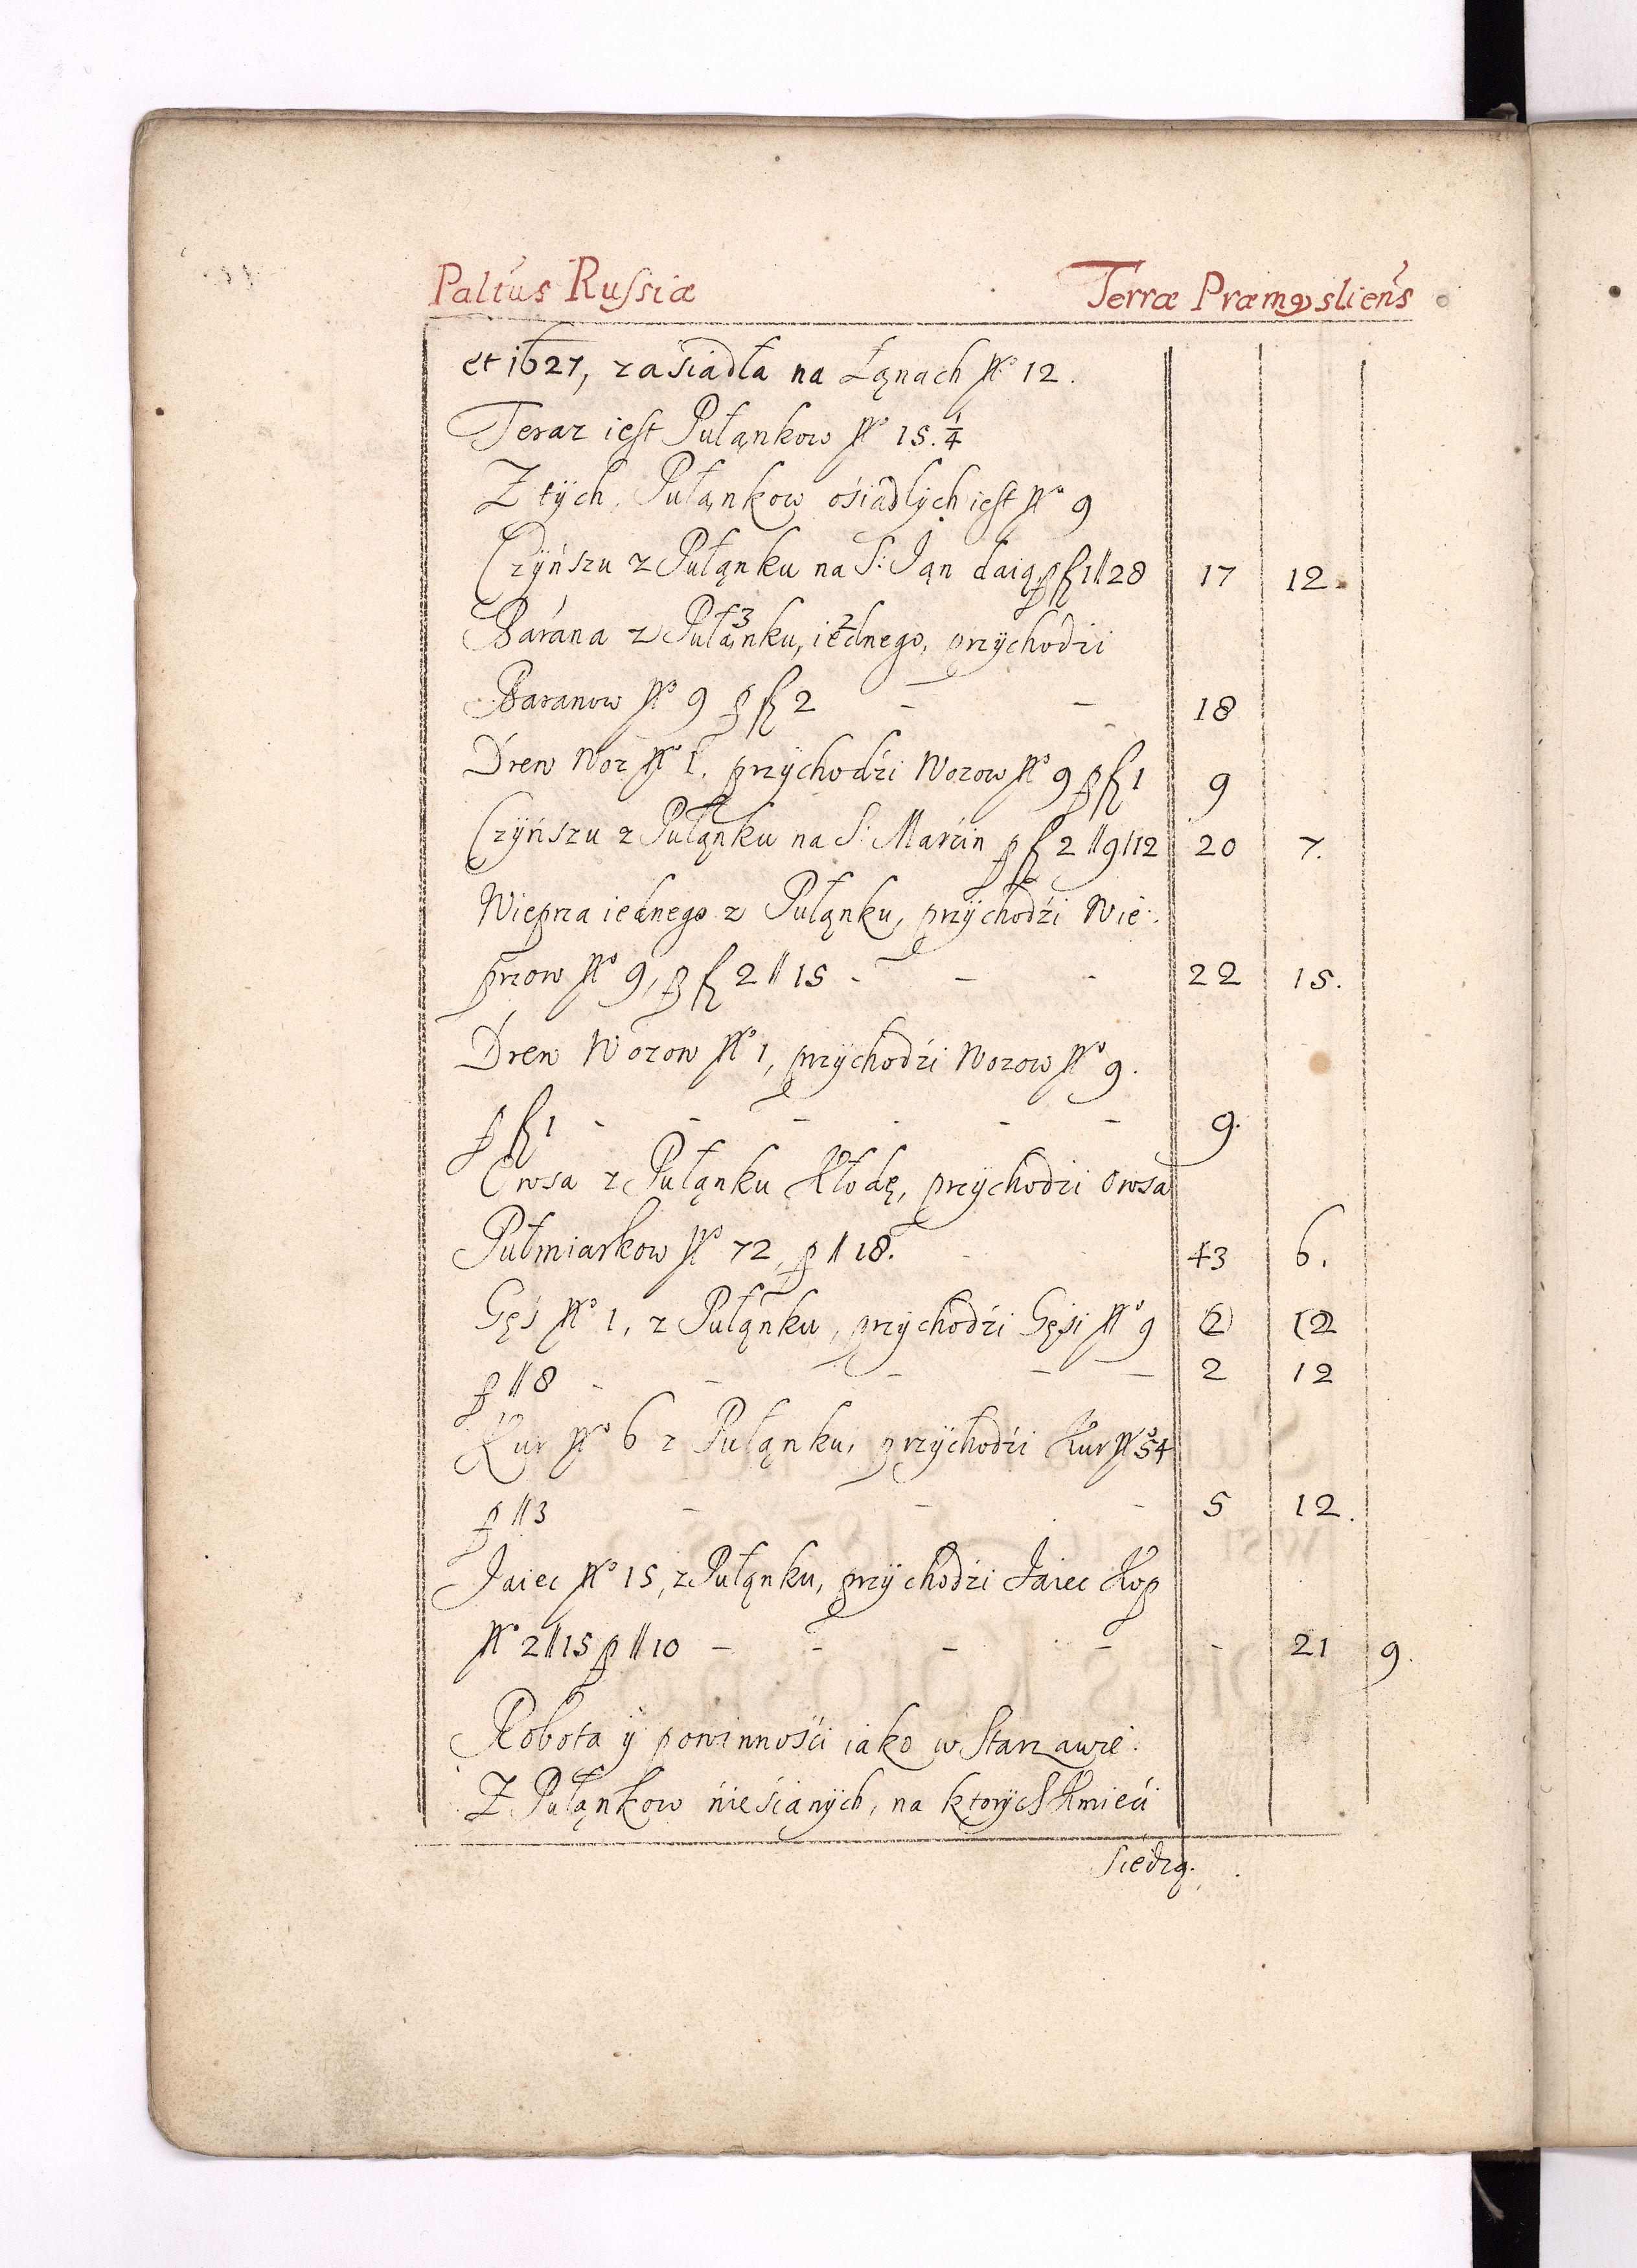 Paltus Russiæ Terræ Præmysliens
et 1627, zasiadła na Łąnach No 12.
Teraz iest Pułąnkow No 15. 1/4
Z tych Pułąnkow ośiadlych iest No 9
Czÿńszu z Pułąnku na S: Ian daią, p fl 1 // 28 17 12.
Barana z Pułąnku, iednego, przÿchodzi
Baranow No 9 p fl 2 - - 18
Drew Woz No 1. przÿchodźi Wozow No 9 p fl 1 9
Czÿńszu z Pułąnku na S: Marćin p fl 2 // 9 / 12 20 7.
Wieprza iednego z Pułąnku, przÿchodźi Wie:
przow No 9, p fl 2 // 15 - - - 22 15.
Drew Wozow No 1, przÿchodźi Wozow No 9.
p fl 1 - - - - - - 9.
Owsa z Pułąnku Kłodę, przÿchodzi Owsa
Pułmiarkow No 72, p // 18. 43 6.
Gęś No 1, z Pułąnku, przychodźi Gęsi No 9 2 12
p // 8 - - - - - 2 12
Kur No 6 z Pułąnku, przÿchodźi Kur No 54
p // 3 - - - 5 12.
Jaiec No 15, z Pułąnku, przÿchodzi Jaiec Kop
No 2 // 15 p // 10 - - - - - 21 9.
Robota ÿ powinnośći iako w Starzawie.
Z Pułąnkow nieśianÿch, na ktorÿch Kmieći
siedzą.